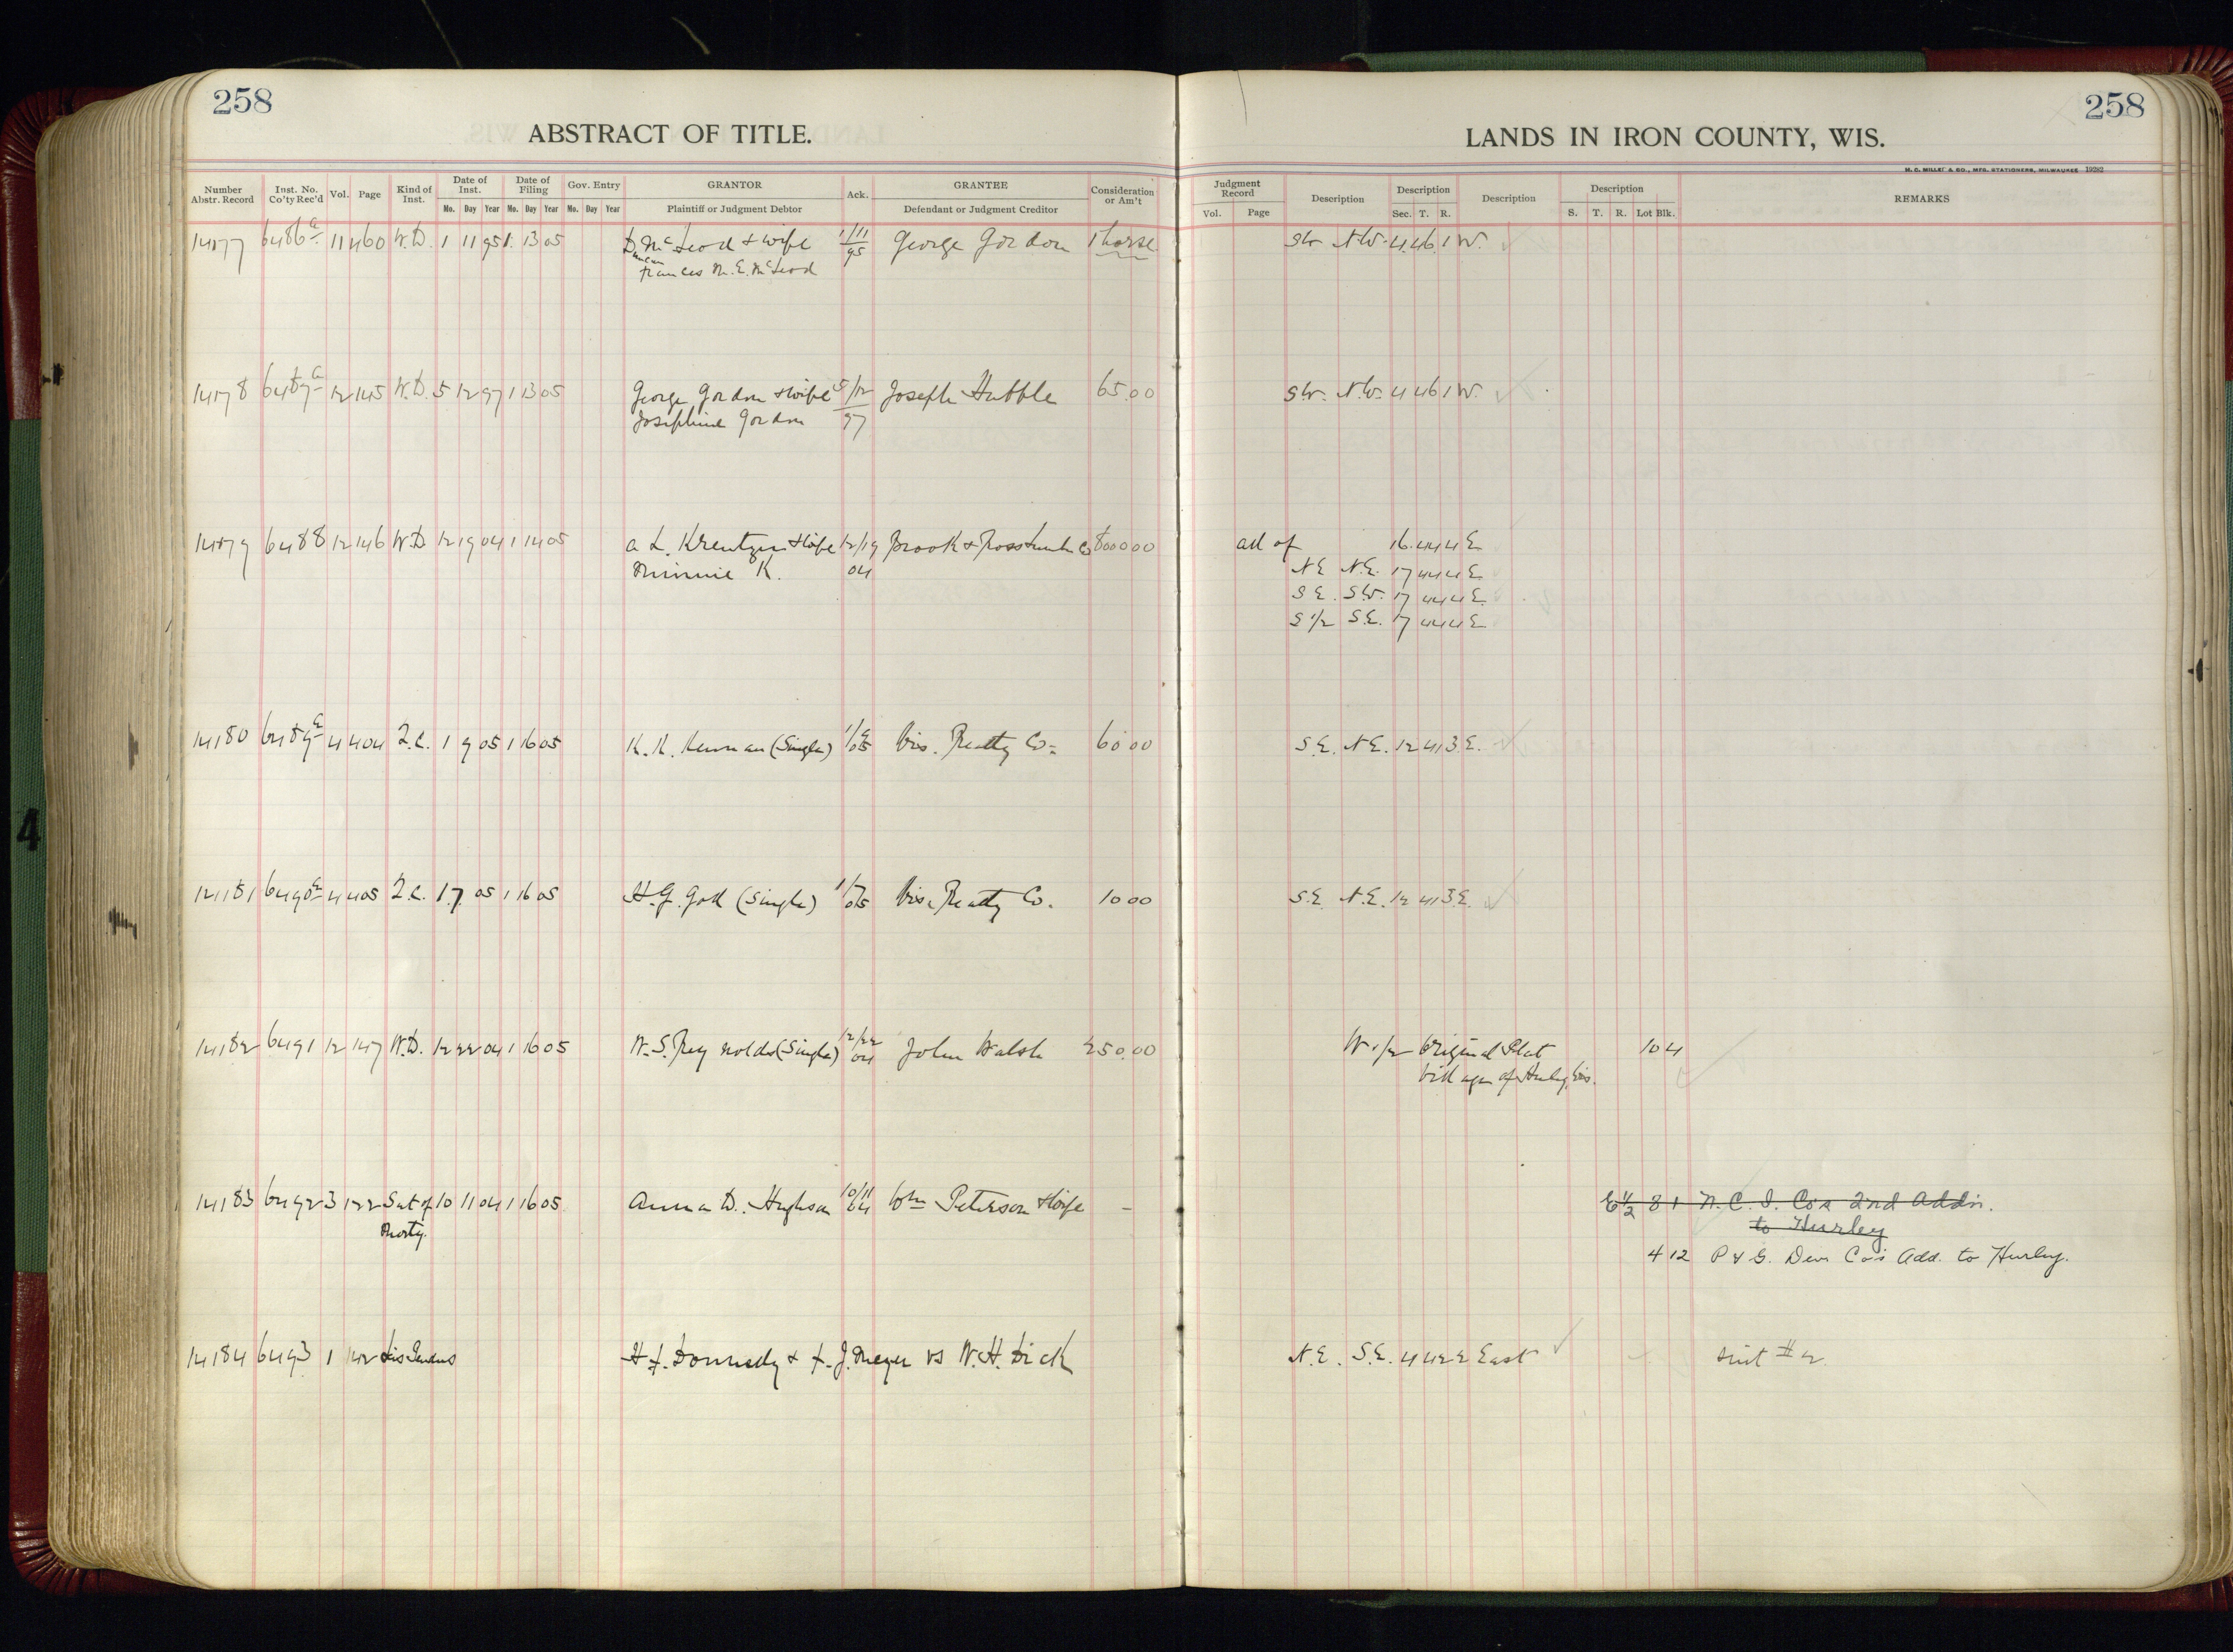 258
ABSTRACT OF TITLE.
Number Abstr. Record | Inst. No. Co'ty Rec'd | Vol. | Page | Kind of Inst. | Date of Inst. Mo. Day Year | Date of Filing Mo. Day Year | Gov. Entry Mo. Day Year | GRANTOR Plaintiff or Judgment Debtor | Ack. | GRANTEE Defendant or Judgment Creditor | Consideration or Am't
14177 6486 11 460 W.D. 1 11 95 1 13 05 D. McLeod & wife 1/11 George Gordon 1 horse
Duncan Frances M. E. McLeod 95
14178 6487 12 145 W.D. 5 12 97 1 13 05 George Gordon & wife 5/12 Joseph Hubble 65.00
Josephine Gordon 97
14179 6488 12 146 W.D. 12 19 04 1 14 05 A. L. Kreutzer & wife 12/19 Brook & Ross Lumber Co 8000 00
Minnie K. 04
14180 6489 4 404 Q.C. 1 9 05 1 16 05 K. K. Kennan (Single) 1/9 05 Wis. Realty Co. 60 00
14181 6490 4 405 Q.C. 1 7 05 1 16 05 H. G. (Single) 1/7 05 Wis. Realty Co. 10 00
14182 6491 12 147 W.D. 12 22 04 1 16 05 W. S. Reynolds (Single) 12/22 04 John Walsh 250.00
14183 6492 3 122 Sat of 10 11 04 1 16 05 Anna D. Hughson 10/11 04 Wm Peterson & wife -
Mortg.
14184 6493 1 142 Lis Pendens H. F. Donnelly & F. J. Meyer vs W. H. Dick
258
LANDS IN IRON COUNTY, WIS.
M. C. MILLER & CO., MFG. STATIONERS, MILWAUKEE 19282
Judgment Record Vol. Page | Description | Description Sec. T. R. | Description | Description S. T. R. Lot Blk. | REMARKS
SW NW. 4 46 1 W.
SW. N.W. 4 46 1 W.
All of 16 44 4 E
NE N.E. 17 44 4 E
SE. SW. 17 44 4 E.
S 1/2 S.E. 17 44 4 E
S.E. NE. 12 41 3 E.
S.E. N.E. 12 41 3 E.
W 1/2 Original Plat 10 4
Village of Hurley, Wis.
E 1/2 8 1 N. C. I. Co's 2nd Addn.
to Hurley
4 12 P & G. Dev Co's Add. to Hurley.
N.E. S.E. 4 42 2 East suit # 2
4